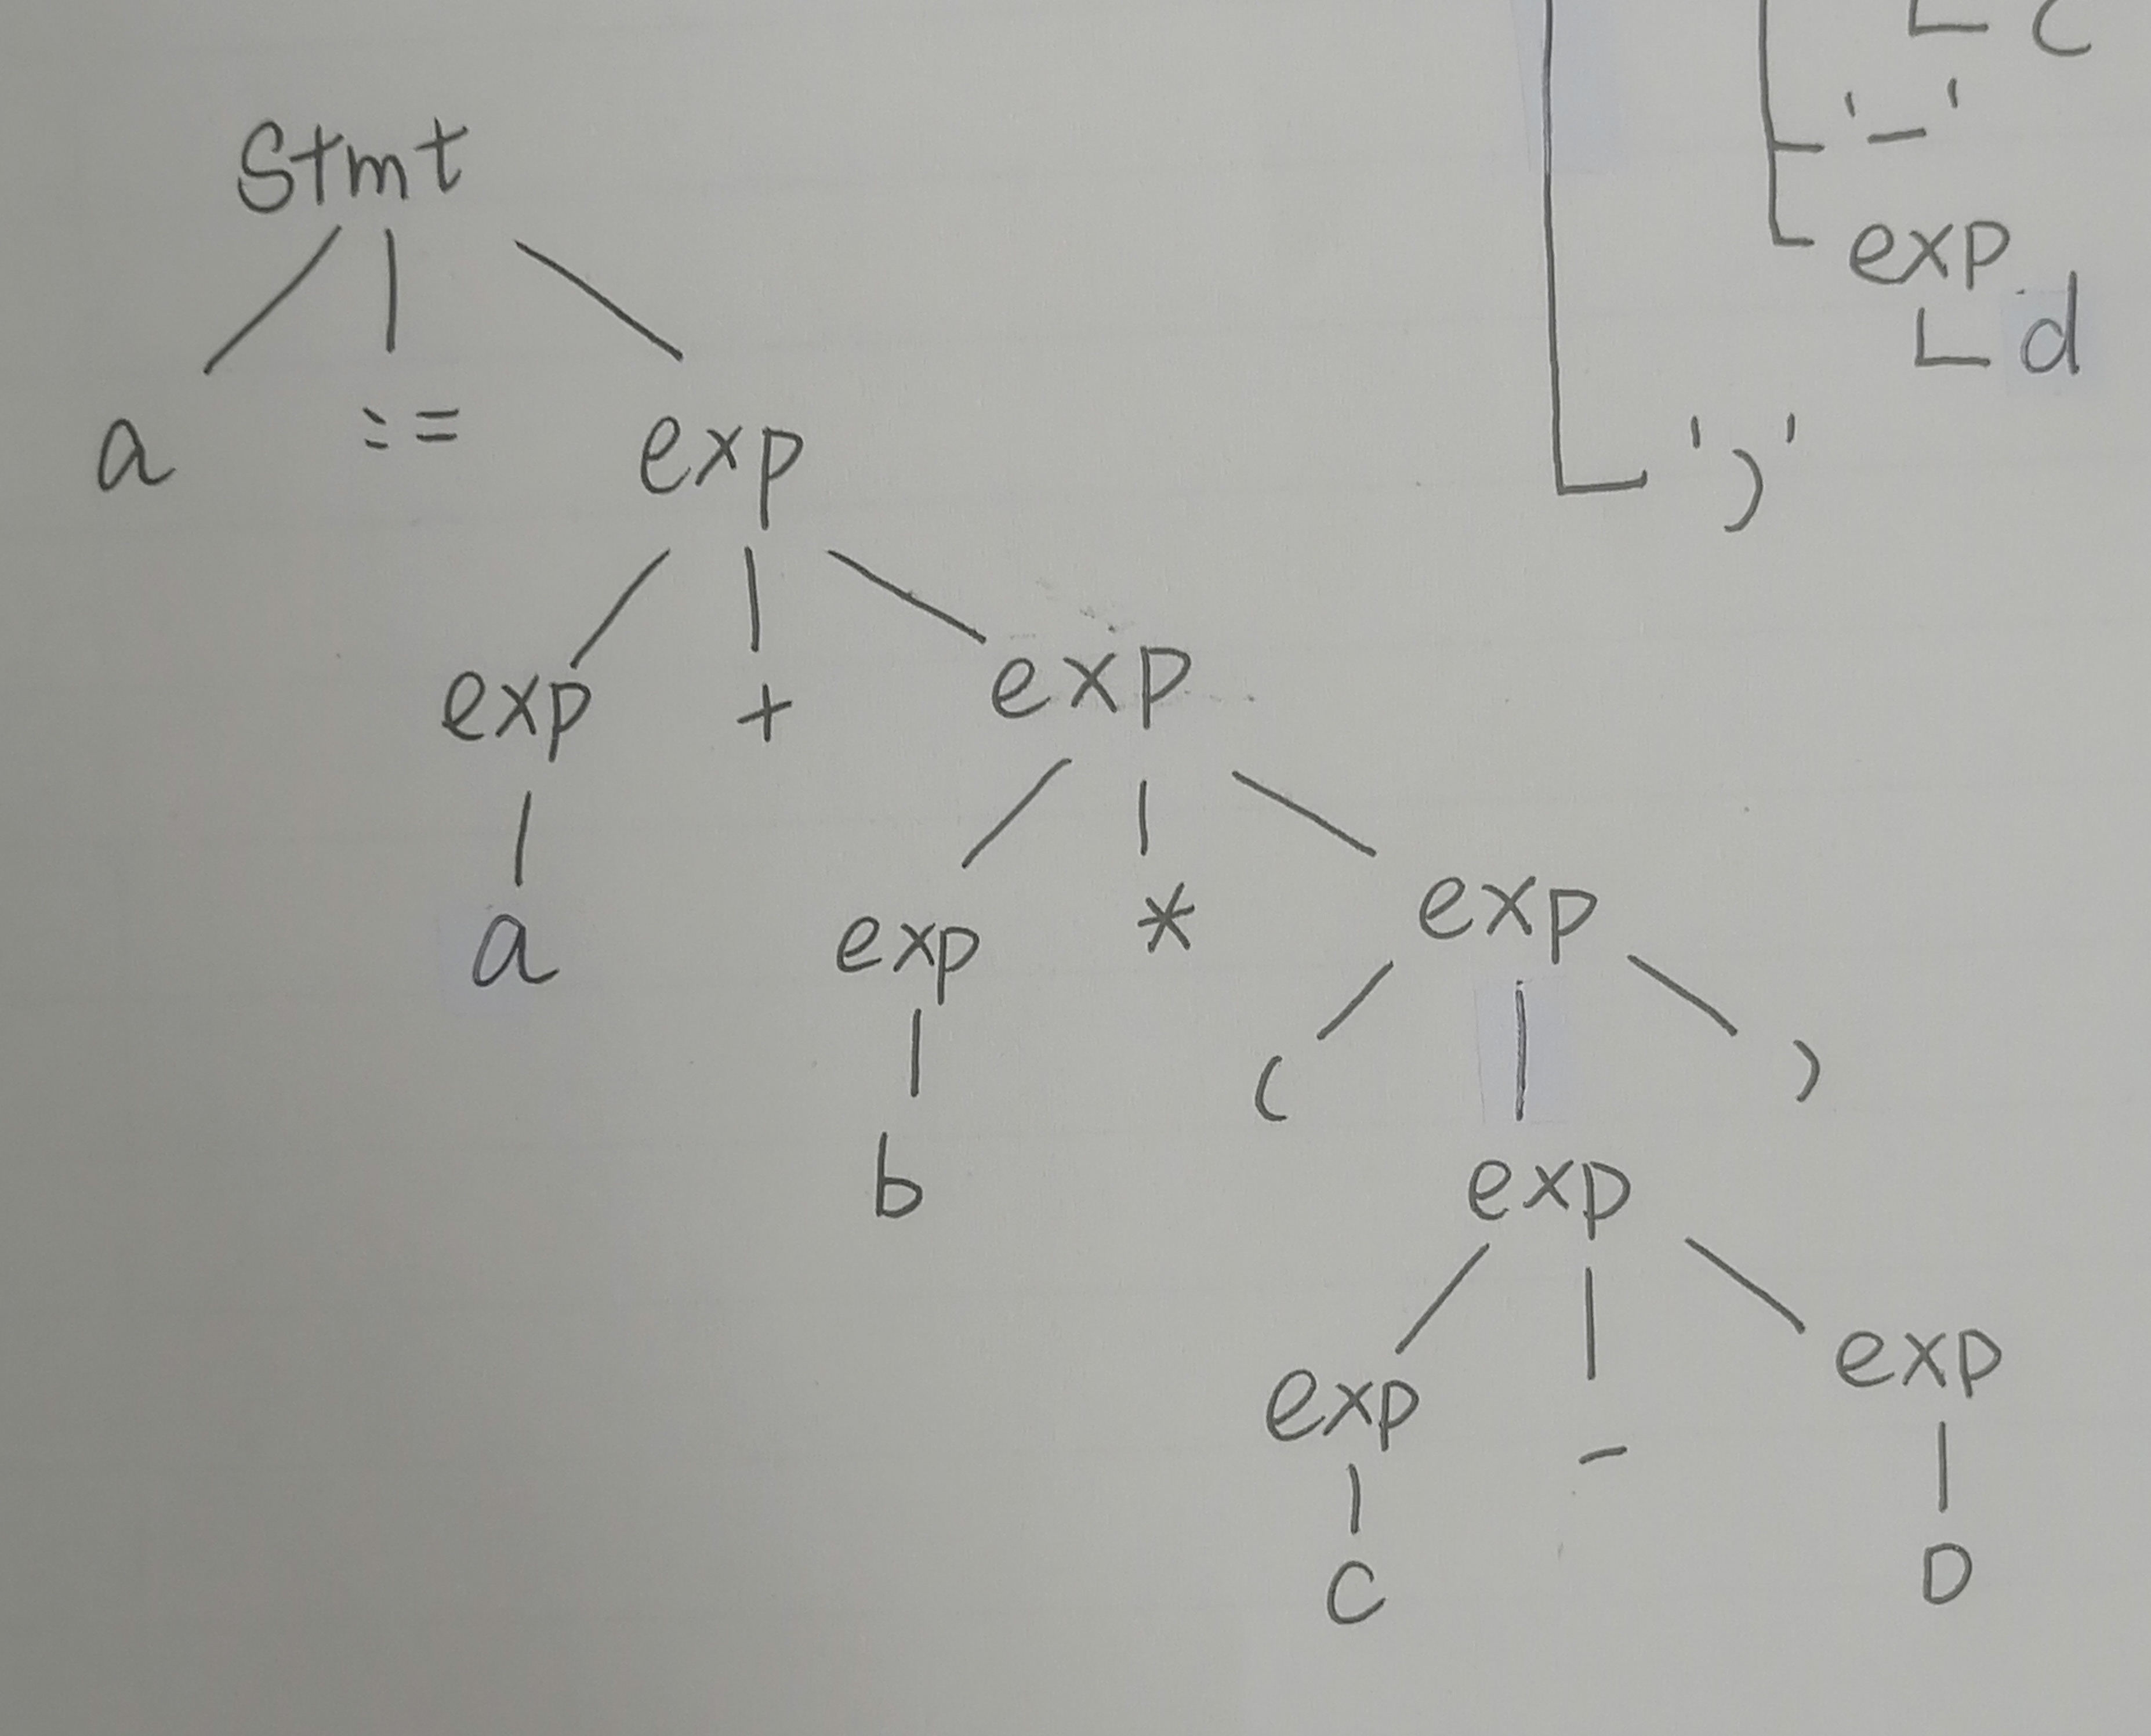 C
'-'
exp
d
')'
Stmt
a := exp
exp + exp
a
exp * exp
b
( )
exp
exp - exp
C D